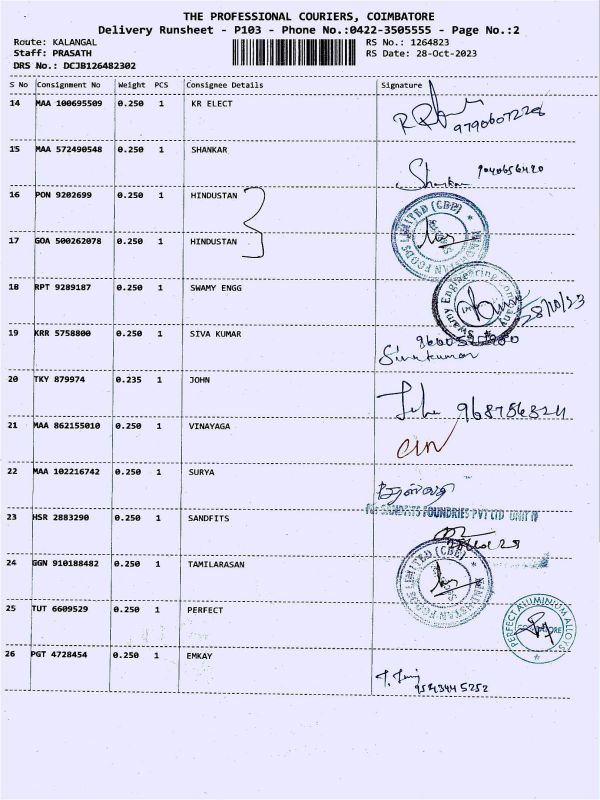 THE PROFESSIONAL COURIERS, COIMBATORE
Delivery Runsheet - P103 - Phone No.:0422-3505555 - Page No.:2
Route: KALANGAL RS No.: 1264823
Staff: PRASATH RS Date: 28-Oct-2023
DRS No.: DCJB126482302
S No Consignment No Weight PCS Consignee Details Signature
14 MAA 100695509 0.250 1 KR ELECT
15 MAA 572490548 0.250 1 SHANKAR
Shankar
16 PON 9202699 0.250 1 HINDUSTAN
17 GOA 500262078 0.250 1 HINDUSTAN
18 RPT 9289187 0.250 1 SWAMY ENGG
Swamy Engineering Company
28/10/23
19 KRR 5758800 0.250 1 SIVA KUMAR
Sivakumar
20 TKY 879974 0.235 1 JOHN
21 MAA 862155010 0.250 1 VINAYAGA
22 MAA 102216742 0.250 1 SURYA
For SANDFITS FOUNDRIES PVT LTD UNIT IV
23 HSR 2883290 0.250 1 SANDFITS
24 GGN 910188482 0.250 1 TAMILARASAN
25 TUT 6609529 0.250 1 PERFECT
PERFECT ALUMINIUM ALLOYS
26 PGT 4728454 0.250 1 EMKAY